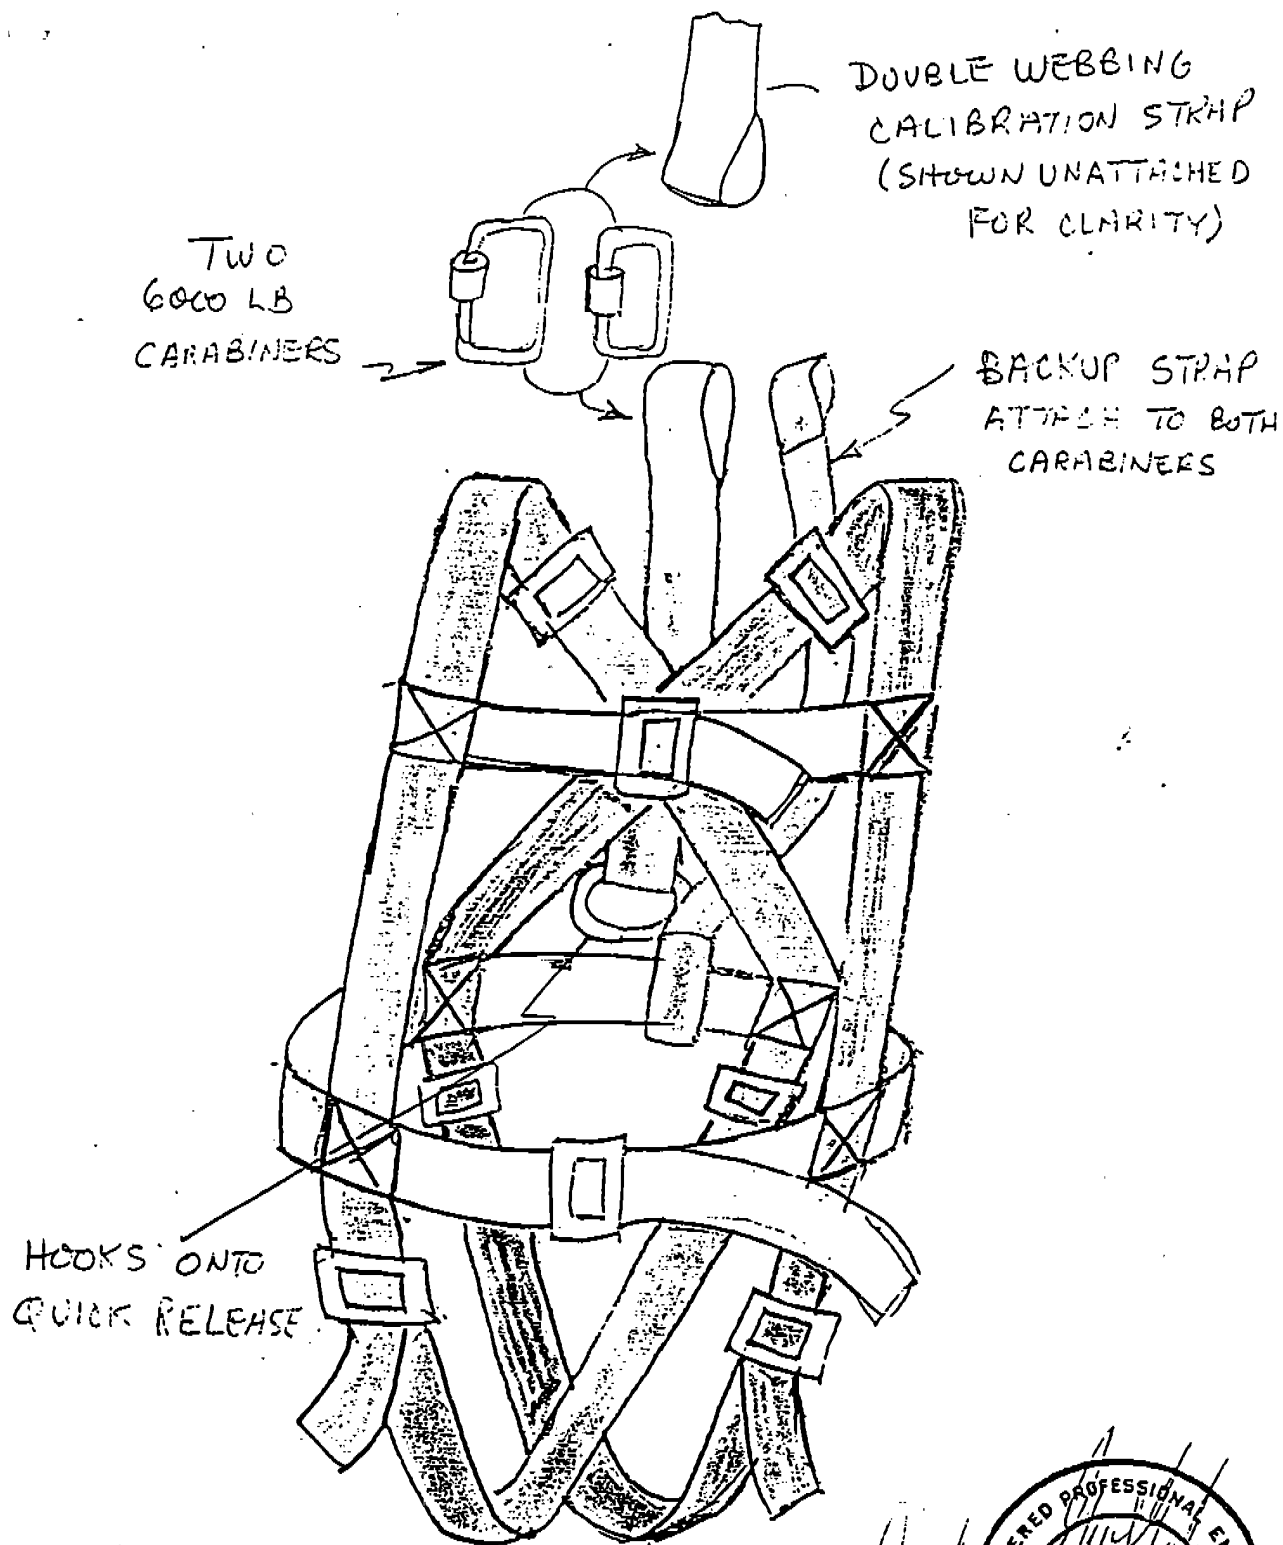 DOUBLE WEBBING
CALIBRATION STRAP
(SHOWN UNATTACHED
FOR CLARITY)
TWO
6000 LB
CARABINERS
BACKUP STRAP
ATTACH TO BOTH
CARABINERS
HOOKS ONTO
QUICK RELEASE
PROFESSIONAL